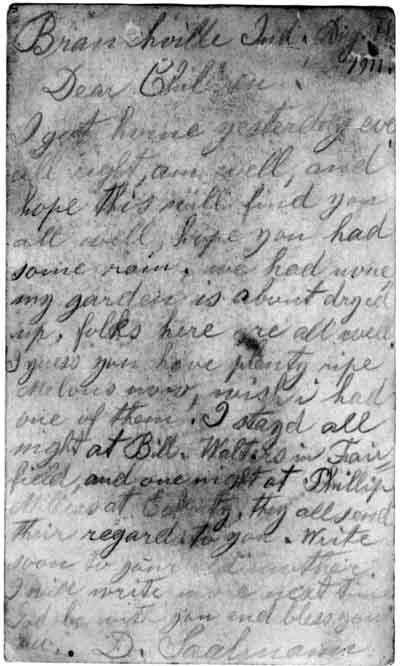 Branchville Ind.
1911.
Dear Children.
I got home yesterday eve
all right, am well, and
hope this will find you
all well, hope you had
some rain. we had none,
my garden is about dryed
up. folks here are all well.
I guess you have plenty ripe
Melons now, wish i had
one of them. I stayd all
night at Bill. Walters in Fair-
field, and one night at Phillip
at they all send
their regards to you. Write
soon to your
I will write more next time
God be with you and bless you
all. D. Saalmann